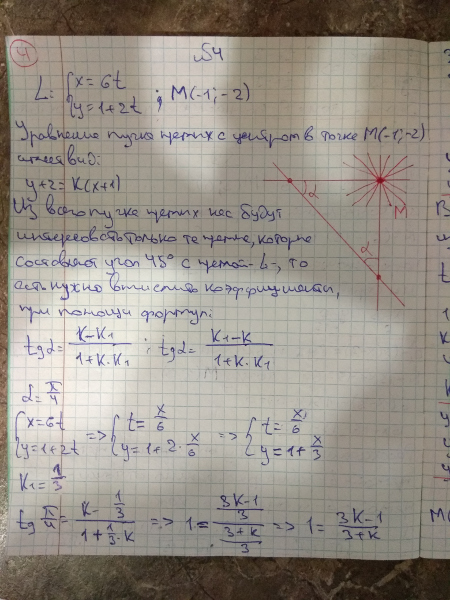 4
№4
L: { x=6t ; M(-1;-2)
y=1+2t
Уравнение пучка прямых с центром в точке M(-1;-2)
имеет вид:
y+2=K(x+1)
Из всего пучка прямых нас будут
интересовать только те прямые, которые
составляют угол 45° с прямой L, то
есть нужно вычислить коэффициенты,
при помощи формул:
tgα = (K-K1)/(1+K·K1) ; tgα = (K1-K)/(1+K·K1)
α = π/4
{ x=6t => { t=x/6 => { t=x/6
y=1+2t y=1+2·x/6 y=1+x/3
K1=1/3
tg π/4 = (K-1/3)/(1+1/3·K) => 1 = ((3K-1)/3)/((3+K)/3) => 1 = (3K-1)/(3+K)
α
M
α